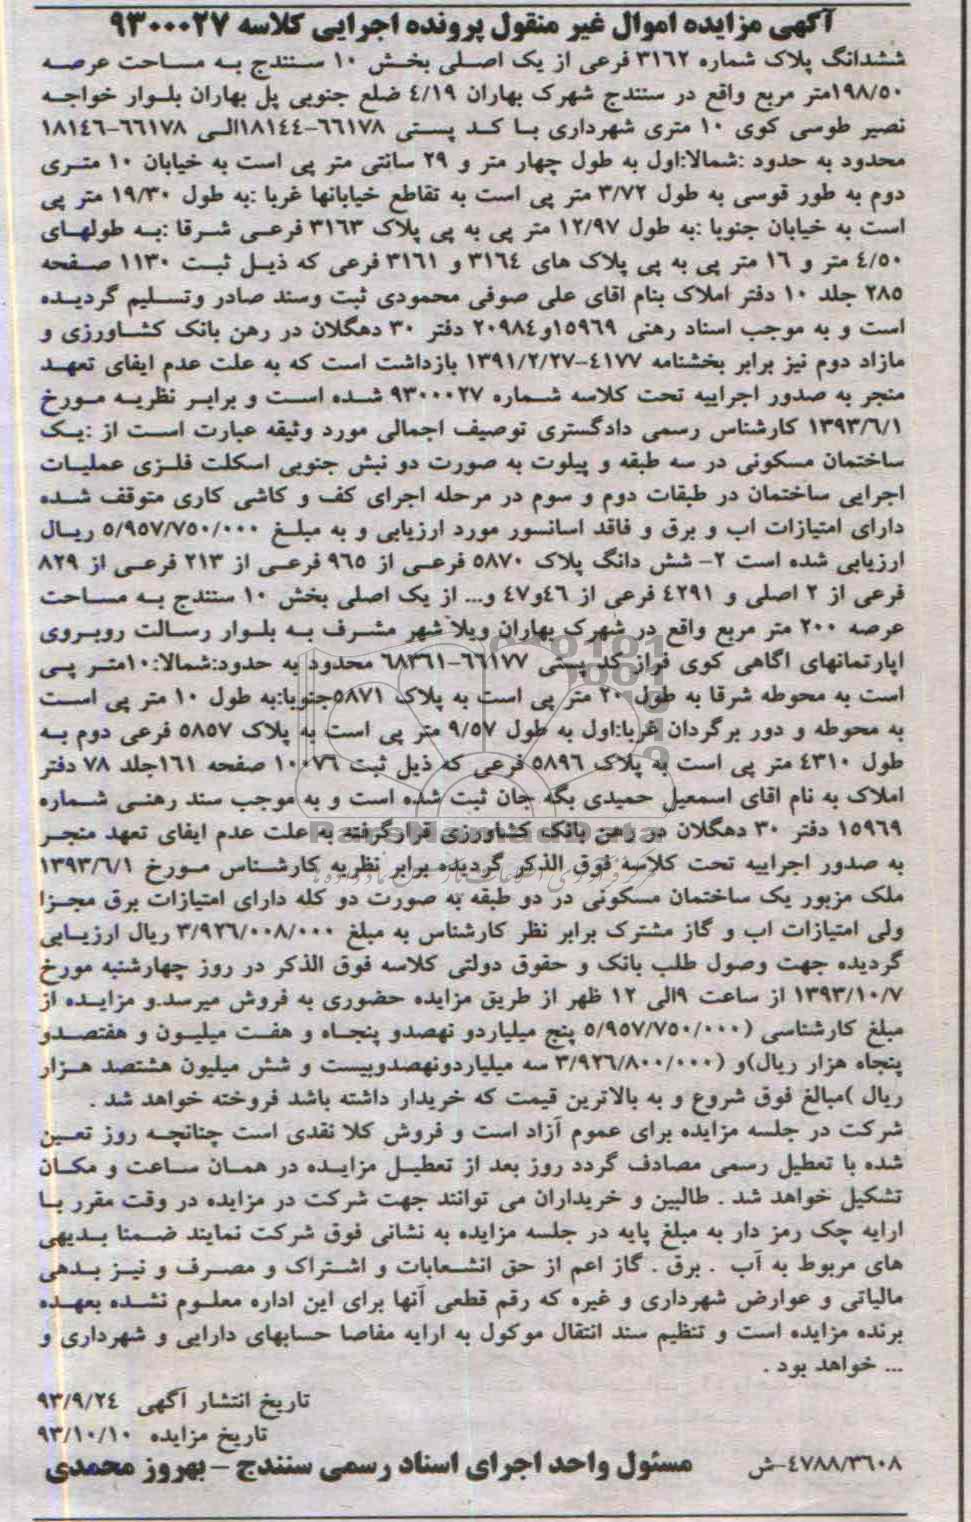 آگهی مزایده اموال غیر منقول پرونده اجرایی کلاسه ۹۳۰۰۰۲۷
ششدانگ پلاک شماره ۳۱۶۲ فرعی از یک اصلی بخش ۱۰ سنندج به مساحت عرصه
۱۹۸/۵۰متر مربع واقع در سنندج شهرک بهاران ٤/۱۹ ضلع جنوبی پل بهاران بلوار خواجه
نصیر طوسی کوی ۱۰ متری شهرداری با کد پستی ۶۶۱۷۸-۱۸۱٤٤الی ۶۶۱۷۸-۱۸۱٤٦
محدود به حدود :شمالا:اول به طول چهار متر و ۲۹ سانتی متر پی است به خیابان ۱۰ متری
دوم به طور قوسی به طول ۳/۷۲ متر پی است به تقاطع خیابانها غربا :به طول ۱۹/۳۰ متر پی
است به خیابان جنوبا :به طول ۱۲/۹۷ متر پی به پی پلاک ۳۱۶۳ فرعی شرقا :به طولهای
٤/۵۰ متر و ۱۶ متر پی به پی پلاک های ۳۱٦٤ و ۳۱۶۱ فرعی که ذیل ثبت ۱۱۳۰ صفحه
۲۸۵ جلد ۱۰ دفتر املاک بنام اقای علی صوفی محمودی ثبت وسند صادر وتسلیم گردیده
است و به موجب اسناد رهنی ۱۵۹۶۹و۲۰۹۸٤ دفتر ۳۰ دهگلان در رهن بانک کشاورزی و
مازاد دوم نیز برابر بخشنامه ٤۱۷۷-۱۳۹۱/۲/۲۷ بازداشت است که به علت عدم ایفای تعهد
منجر به صدور اجراییه تحت کلاسه شماره ۹۳۰۰۰۲۷ شده است و برابر نظریه مورخ
۱۳۹۳/٦/۱ کارشناس رسمی دادگستری توصیف اجمالی مورد وثیقه عبارت است از :یک
ساختمان مسکونی در سه طبقه و پیلوت به صورت دو نبش جنوبی اسکلت فلزی عملیات
اجرایی ساختمان در طبقات دوم و سوم در مرحله اجرای کف و کاشی کاری متوقف شده
دارای امتیازات اب و برق و فاقد اسانسور مورد ارزیابی و به مبلغ ۵/۹۵۷/۷۵۰/۰۰۰ ریال
ارزیابی شده است ۲- شش دانگ پلاک ۵۸۷۰ فرعی از ۹۶۵ فرعی از ۲۱۳ فرعی از ۸۲۹
فرعی از ۲ اصلی و ٤۲۹۱ فرعی از ٤٦و٤۷ و... از یک اصلی بخش ۱۰ سنندج به مساحت
عرصه ۲۰۰ متر مربع واقع در شهرک بهاران ویلا شهر مشرف به بلوار رسالت روبروی
اپارتمانهای اگاهی کوی فراز کد پستی ۶۶۱۷۷-۶۸۳۶۱ محدود به حدود:شمالا:۱۰متر پی
است به محوطه شرقا به طول ۲۰ متر پی است به پلاک ۵۸۷۱جنوبا:به طول ۱۰ متر پی است
به محوطه و دور برگردان غربا:اول به طول ۹/۵۷ متر پی است به پلاک ۵۸۵۷ فرعی دوم به
طول ٤۳۱۰ متر پی است به پلاک ۵۸۹۶ فرعی که ذیل ثبت ۱۰۰۷۶ صفحه ۱۶۱جلد ۷۸ دفتر
املاک به نام اقای اسمعیل حمیدی بگه جان ثبت شده است و به موجب سند رهنی شماره
۱۵۹۶۹ دفتر ۳۰ دهگلان در رهن بانک کشاورزی قرارگرفته به علت عدم ایفای تعهد منجر
به صدور اجراییه تحت کلاسه فوق الذکر گردیده برابر نظریه کارشناس مورخ ۱۳۹۳/٦/۱
ملک مزبور یک ساختمان مسکونی در دو طبقه به صورت دو کله دارای امتیازات برق مجزا
ولی امتیازات اب و گاز مشترک برابر نظر کارشناس به مبلغ ۳/۹۲۶/۰۰۸/۰۰۰ ریال ارزیابی
گردیده جهت وصول طلب بانک و حقوق دولتی کلاسه فوق الذکر در روز چهارشنبه مورخ
۱۳۹۳/۱۰/۷ از ساعت ۹الی ۱۲ ظهر از طریق مزایده حضوری به فروش میرسد.و مزایده از
مبلغ کارشناسی (۵/۹۵۷/۷۵۰/۰۰۰ پنج میلیاردو نهصدو پنجاه و هفت میلیون و هفتصدو
پنجاه هزار ریال)و (۳/۹۲۶/۸۰۰/۰۰۰ سه میلیاردونهصدوبیست و شش میلیون هشتصد هزار
ریال )مبالغ فوق شروع و به بالاترین قیمت که خریدار داشته باشد فروخته خواهد شد .
شرکت در جلسه مزایده برای عموم آزاد است و فروش کلا نقدی است چنانچه روز تعیین
شده با تعطیل رسمی مصادف گردد روز بعد از تعطیل مزایده در همان ساعت و مکان
تشکیل خواهد شد . طالبین و خریداران می توانند جهت شرکت در مزایده در وقت مقرر با
ارایه چک رمز دار به مبلغ پایه در جلسه مزایده به نشانی فوق شرکت نمایند ضمنا بدیهی
های مربوط به آب . برق . گاز اعم از حق انشعابات و اشتراک و مصرف و نیز بدهی
مالیاتی و عوارض شهرداری و غیره که رقم قطعی آنها برای این اداره معلوم نشده بعهده
برنده مزایده است و تنظیم سند انتقال موکول به ارایه مفاصا حسابهای دارایی و شهرداری و
... خواهد بود .
تاریخ انتشار آگهی ۹۳/۹/۲٤
تاریخ مزایده ۹۳/۱۰/۱۰
٤۷۸۸/۳۶۰۸-ش مسئول واحد اجرای اسناد رسمی سنندج – بهروز محمدی
ParsNamadData